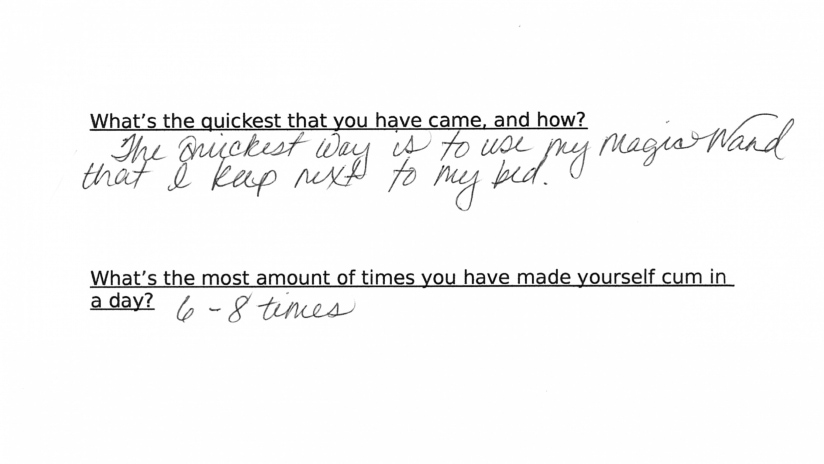 What's the quickest that you have came, and how?
The Quickest way is to use my Magic Wand
that I keep next to my bed.
What's the most amount of times you have made yourself cum in
a day? 6-8 times